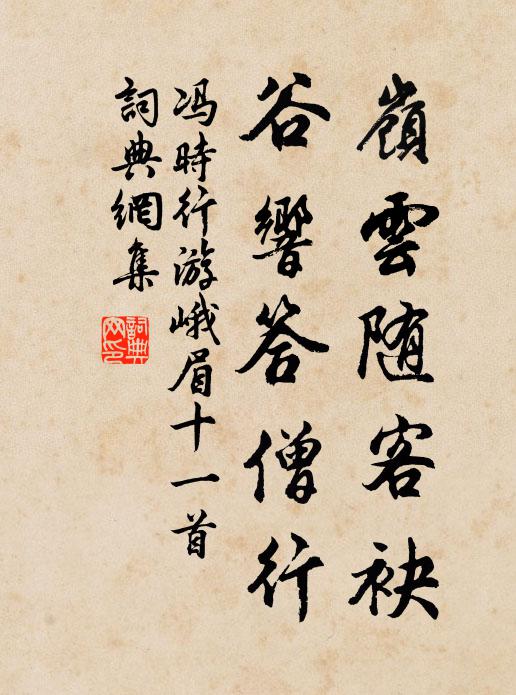 嶺雲随客袂
谷響答僧行
冯時行游峨眉十一首
詞典網集
詞典網印